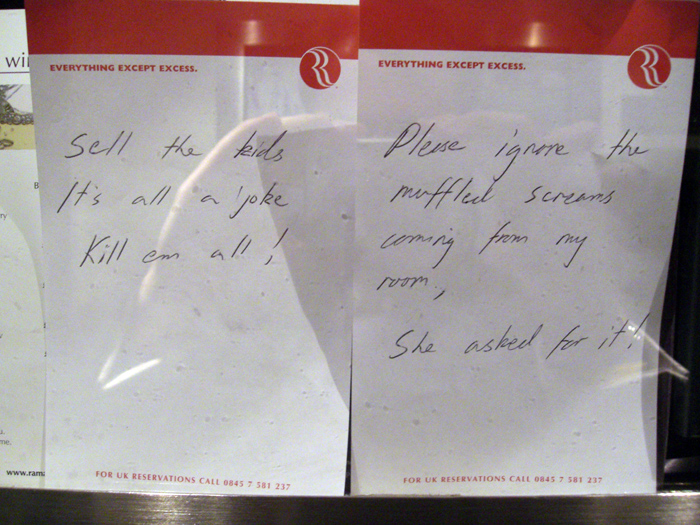 EVERYTHING EXCEPT EXCESS.
Sell the kids
It's all a joke
Kill em all!
FOR UK RESERVATIONS CALL 0845 7 581 237
EVERYTHING EXCEPT EXCESS.
Please ignore the
muffled screams
coming from my
room,
She asked for it!
FOR UK RESERVATIONS CALL 0845 7 581 237
www.ram